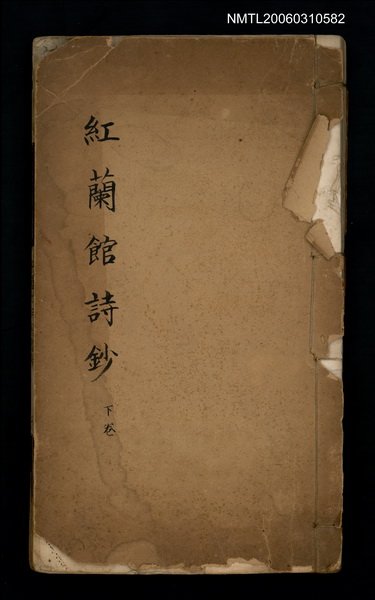 NMTL20060310582
紅蘭館詩鈔
下卷